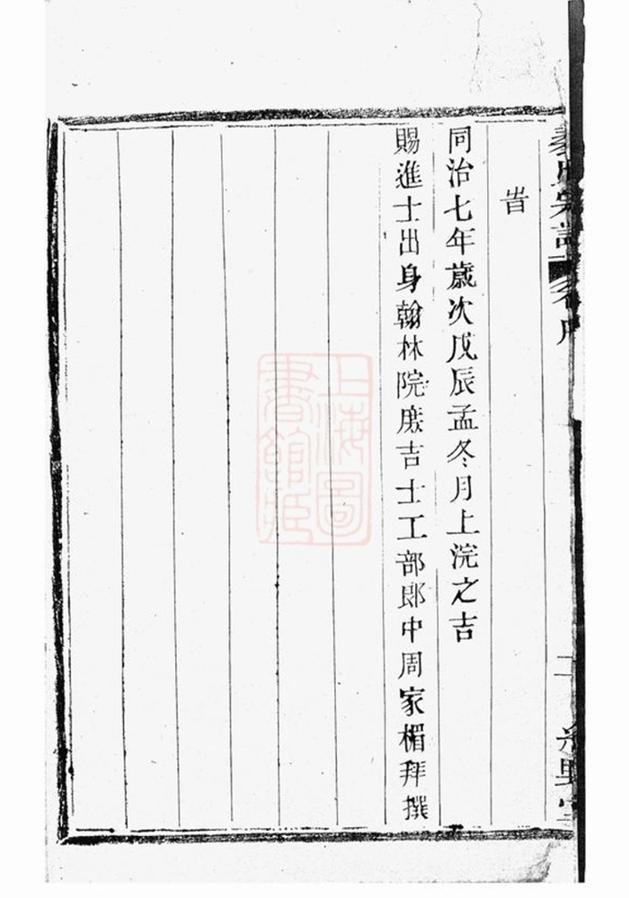 旹
同治七年歲次戊辰孟冬月上浣之吉
賜進士出身翰林院庶吉士工部郎中周家楣拜撰
上海圖
書館藏